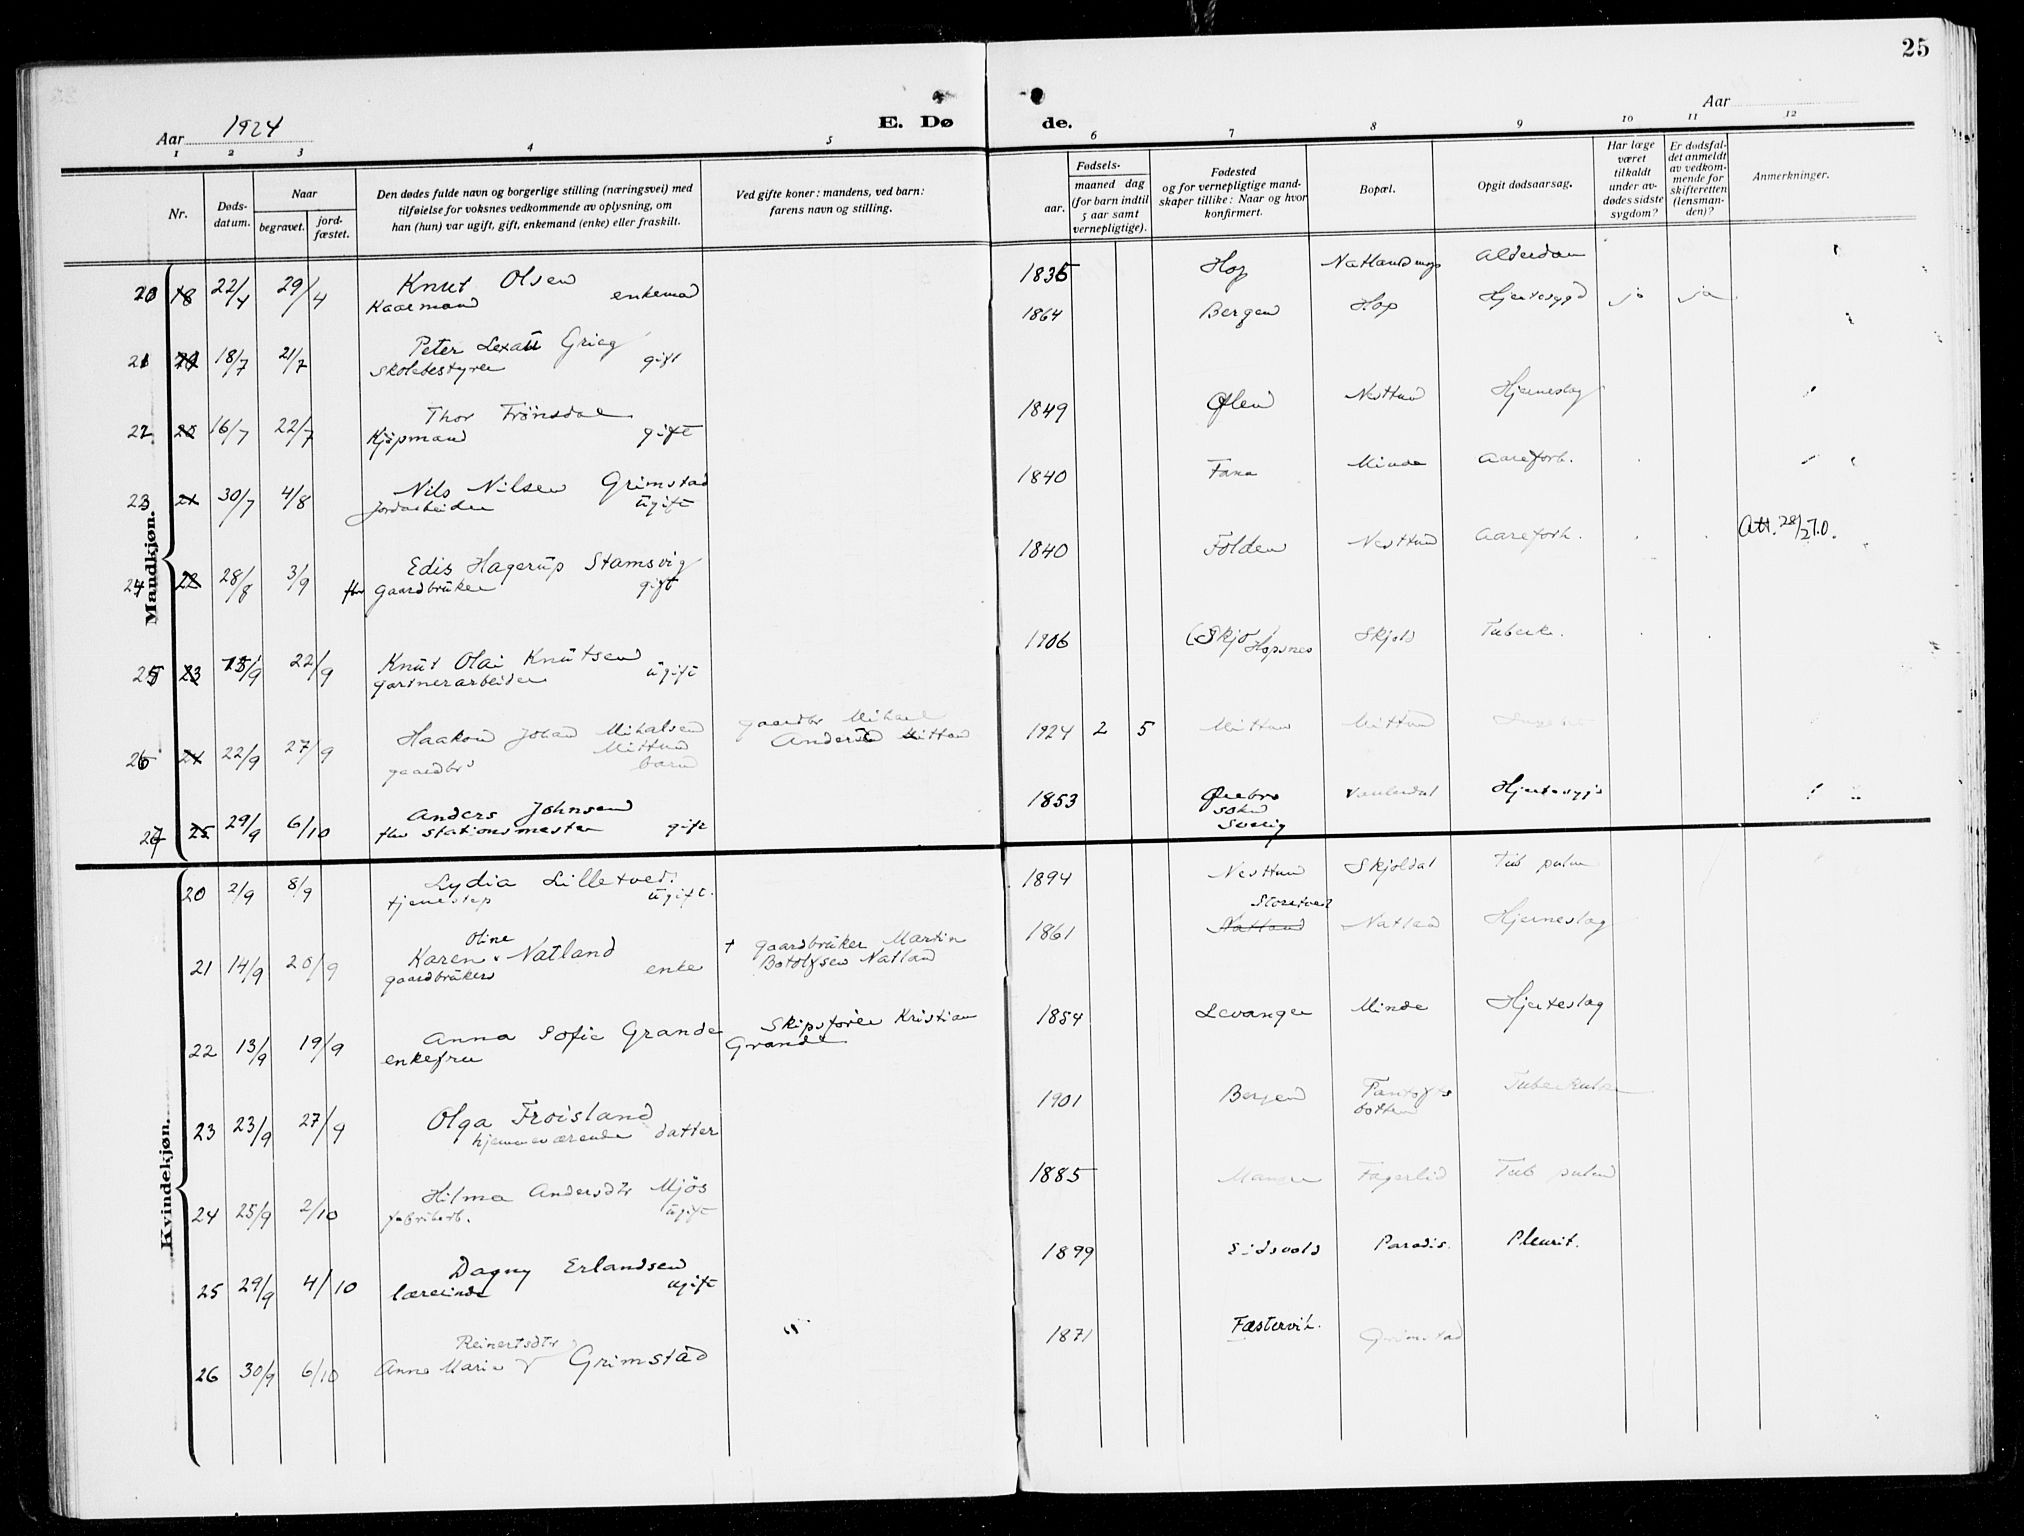 25
Aar 1924
E. Døde.
Aar
1 2 3 4 5 6 7 8 9 10 11 12
Nr.
Døds-datum.
Naar
begravet.
jord-fæstet.
Den dødes fulde navn og borgerlige stilling (næringsvei) med
tilføielse for voksnes vedkommende av oplysning, om
han (hun) var ugift, gift, enkemand (enke) eller fraskilt.
Ved gifte koner: mandens, ved barn:
farens navn og stilling.
Fødsels-
aar.
maaned dag
(for barn indtil
5 aar samt
vernepligtige).
Fødested
og for vernepligtige mand-
skaper tillike: Naar og hvor
konfirmert.
Bopæl.
Opgit dødsaarsag.
Har læge
været
tilkaldt
under av-
dødes sidste
sygdom?
Er dødsfal-
det anmeldt
av vedkom-
mende for
skifteretten
(lensman-
den)?
Anmerkninger.
Mandkjøn.
20 18 22/4 29/4 Knut Olsen 1835 Hop Nattlandsmyr Alderdom
Kaarmand enkemand
21 18/7 21/7 Peter Lexau Grieg 1864 Bergen Hop Hjertesygd ja ja
Skolebestyrer gift
22 20 16/7 22/7 Thor Frönsdal 1849 Ølen Nesttun Hjerneslag
Kjøpmand gift
23 21 30/7 4/8 Nils Nilsen Grimstad 1840 Fana Minde Aareforh.
Jordarbeider ugift
24 22 28/8 3/9 Edis Hagerup Stamsvig 1840 Folden Nesttun Aareforh. Att. 28/2 70.
fhv gaardbruker gift
25 23 15/9 22/9 Knut Olai Knutsen 1906 (Skjo) Hopsnes Skjold Tuberk.
gartnerarbeider ugift
26 24 22/9 27/9 Haakon Johan Mikalsen Mittun gaardbr Mikael 1924 2 5 Mittun Mittun
gaardbrs barn Anders Mittun
27 25 29/9 6/10 Anders Johnsen 1853 Ørebro sokn Sverig Hjertesygd
fhv stationsmester gift
Kvindekjøn.
20 2/9 8/9 Lydia Lilletved. 1894 Nesttun Skjoldal Tub pulm
tjenestep ugift.
21 14/9 20/9 Karen Oline Natland † gaardbruker Martin 1861 Natland Storetveit Natland Hjerneslag
gaardbrukers enke Botolfsen Natland
22 13/9 19/9 Anna Sofie Grande Skipsförer Kristian 1854 Levanger Minde Hjerteslag
enkefru Grande
23 23/9 27/9 Olga Froisland 1901 Bergen Fantofts botten Tuberkulose
hjemmeværende datter
24 25/9 2/10 Hilma Andersdtr Mjös 1885 Manger Fagerlid Tub pulm
fabrikarb. ugift
25 29/9 4/10 Dagny Erlandsen 1899 Eidsvold Paradis. Pleurit.
lærerinde ugift
26 30/9 6/10 Anna Marie Reinertsdtr Grimstad 1871 Fæstervik. Grimstad